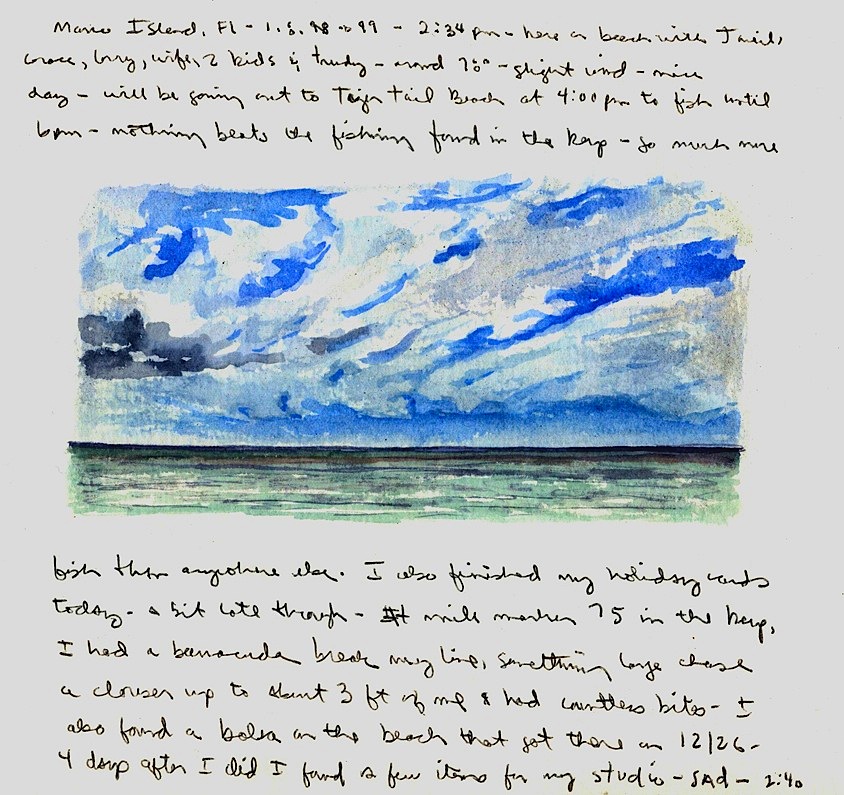 Marco Island, Fl - 1.5.98 → 99 - 2:34 pm - here on beach with
, wife, 2 kids & Trudy - around 75° - slight wind - nice
day - will be going out to Tiger Tail Beach at 4:00 pm to fish until
6pm - nothing beats the fishing found in the Keys - so much more
fish than anywhere else. I also finished my holiday cards
today - a bit late though - At mile marker 75 in the Keys,
I had a barracuda break my line, something large chase
a clouser up to about 3 ft of me & had countless bites - I
also found a balsa on the beach that got there on 12/26 -
4 days after I did I found a few items for my studio - SAd - 2:40